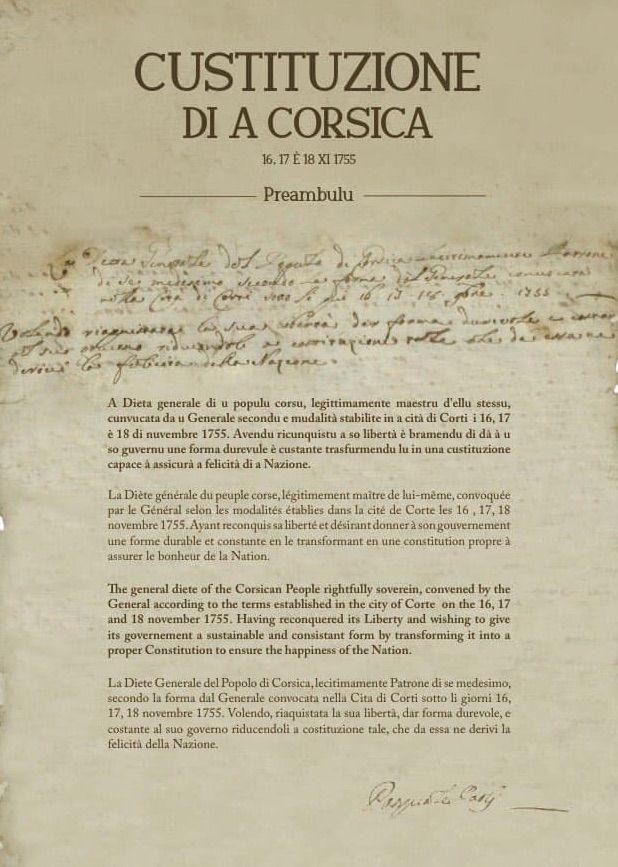 CUSTITUZIONE
DI A CORSICA
16, 17 È 18 XI 1755
Preambulu
La Dieta Generale del Popolo di Corsica lecitimamente Patrone
di se medesimo secondo la forma dal Generale convocata
nella Città di Corti sotto li 16 17 18 9bre 1755
Volendo riaquistata la sua libertà dar forma durevole e costan
al suo governo riducendoli a costituzione tale che da essa ne
derivi la felicità della Nazione.
A Dieta generale di u populu corsu, legittimamente maestru d'ellu stessu,
cunvucata da u Generale secundu e mudalità stabilite in a cità di Corti i 16, 17
è 18 di nuvembre 1755. Avendu ricunquistu a so libertà è bramendu di dà à u
so guvernu une forma durevule è custante trasfurmendu lu in una custituzione
capace à assicurà a felicità di a Nazione.
La Diète générale du peuple corse, légitimement maître de lui-même, convoquée
par le Général selon les modalités établies dans la cité de Corte les 16 , 17, 18
novembre 1755. Ayant reconquis sa liberté et désirant donner à son gouvernement
une forme durable et constante en le transformant en une constitution propre à
assurer le bonheur de la Nation.
The general diete of the Corsican People rightfully soverein, convened by the
General according to the terms established in the city of Corte on the 16, 17
and 18 november 1755. Having reconquered its Liberty and wishing to give
its governement a sustainable and consistant form by transforming it into a
proper Constitution to ensure the happiness of the Nation.
La Diete Generale del Popolo di Corsica, lecitimamente Patrone di se medesimo,
secondo la forma dal Generale convocata nella Cita di Corti sotto li giorni 16,
17, 18 novembre 1755. Volendo, riaquistata la sua libertà, dar forma durevole, e
costante al suo governo riducendoli a costituzione tale, che da essa ne derivi la
felicità della Nazione.
Pasquale Paoli